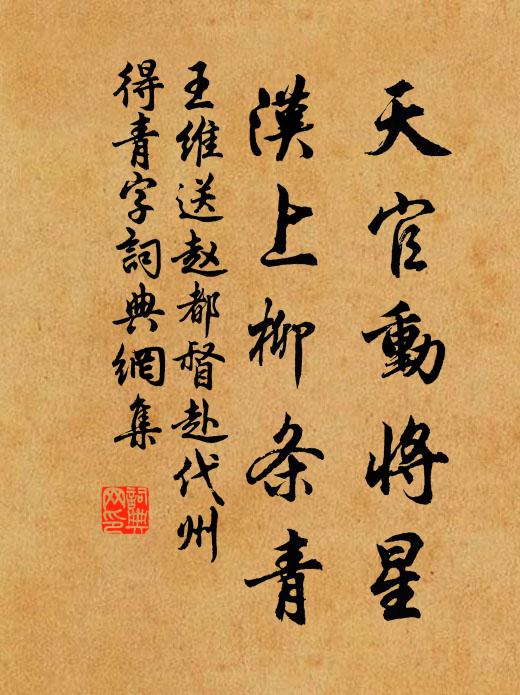 天官動將星
漢上柳条青
王維送赵都督赴代州
得青字詞典網集
詞典
网印